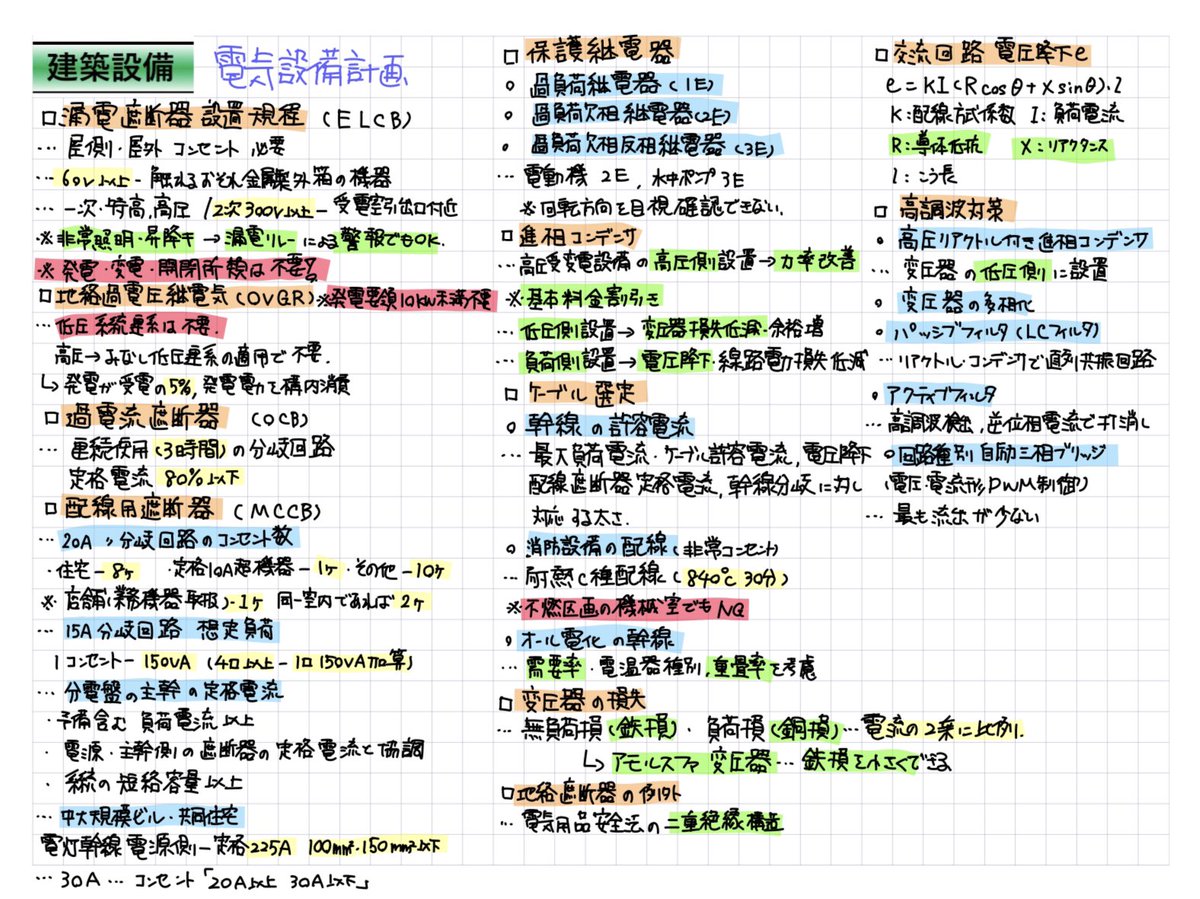 建築設備 電気設備計画
□漏電遮断器 設置規程 (ELCB)
… 屋側・屋外 コンセント 必要
… 60V以上 - 触れるおそれ金属製外箱の機器
… 一次・特高,高圧 / 2次300V以上 - 受電室引出口付近
※ 非常照明・昇降キ → 漏電リレーによる警報でもOK.
※ 発電・変電・開閉所 は不要
□地絡過電圧継電気(OVGR) ※発電要領10kW未満不要
… 低圧系統連系は不要.
高圧→みなし低圧連系の適用で不要.
↳ 発電が受電の5%, 発電電力を構内消費
□ 過電流遮断器 (OCB)
… 連続使用(3時間)の分岐回路
定格電流 80%以下
□ 配線用遮断器 (MCCB)
… 20A 〃 分岐回路のコンセント数
・住宅 - 8ヶ ・定格10A超機器 - 1ヶ・その他 - 10ヶ
※ 店舗(業務機器取扱)・1ヶ 同一室内であれば2ヶ
… 15A分岐回路 想定負荷
1コンセント - 150VA (4口以上 - 1口150VA加算)
… 分電盤の主幹の定格電流
・予備含む 負荷電流以上
・電源・主幹側の遮断器の定格電流と協調
・系統の短絡容量以上
… 中大規模ビル・共同住宅
電灯幹線電源側 - 定格225A 100mm²・150mm²以下
… 30A … コンセント「20A以上 30A以下」
□ 保護継電器
○ 過負荷継電器 (1E)
○ 過負荷欠相継電器(2E)
○ 過負荷欠相反相継電器 (3E)
… 電動機 2E, 水中ポンプ 3E
※ 回転方向を目視確認できない.
□ 進相コンデンサ
… 高圧受変電設備の高圧側設置→力率改善
※ 基本料金割引き
… 低圧側設置→ 変圧器損失低減・余裕増
… 負荷側設置→ 電圧降下・線路電力損失低減
□ ケーブル選定
○ 幹線の許容電流
… 最大負荷電流・ケーブル許容電流, 電圧降下
配線遮断器定格電流, 幹線分岐に対し
対応する太さ.
○ 消防設備の配線(非常コンセント)
… 耐熱C種配線(840℃ 30分)
※不燃区画の機械室でもNG
○ オール電化の幹線
… 需要率・電温器種別, 重畳率を考慮
□ 変圧器の損失
… 無負荷損(鉄損)・負荷損(銅損)…電流の2乗に比例.
↳ アモルスファ変圧器 … 鉄損を小さくできる
□地絡遮断器の例外
… 電気用品安全法の二重絶縁構造
□ 交流回路 電圧降下e
e=KI(Rcosθ+Xsinθ)・l
K:配線方式係数 I:負荷電流
R:導体低抗 X:リアクタンス
l:こう長
□ 高調波対策
○ 高圧リアクトル付き進相コンデンサ
… 変圧器の低圧側に設置
○ 変圧器の多相化
○ パッシブフィルタ(LCフィルタ)
… リアクトル・コンデンサで直列共振回路
○ アクティブフィルタ
… 高調波検出, 逆位相電流で打消し
○回路種別 自励三相ブリッジ
(電圧・電流形PWM制御)
… 最も流出が少ない